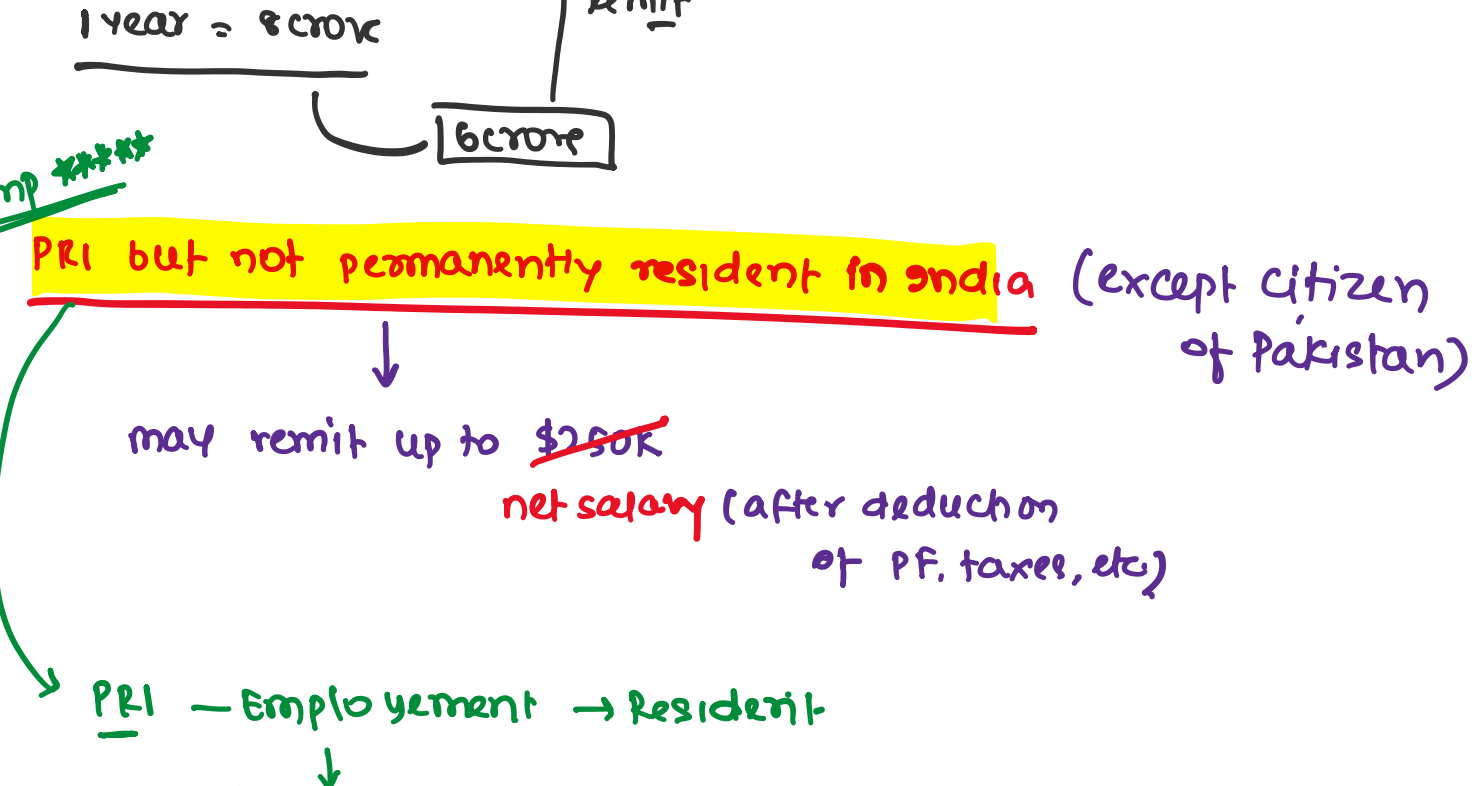 1 year = 8 crore
remit
6 crore
mp *****
PRI but not permanently resident in India (except citizen
of Pakistan)
may remit up to $250K
net salary (after deduction
of PF, taxes, etc)
PRI – Employement → Resident